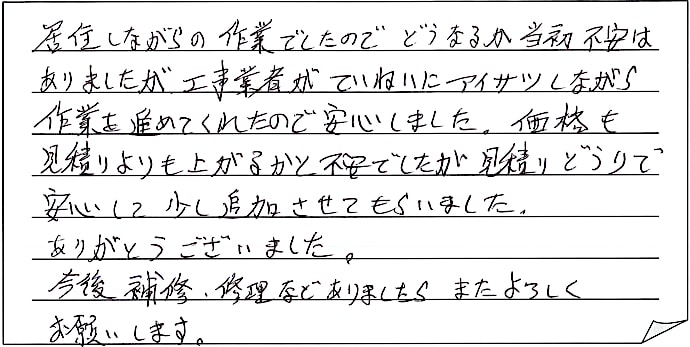 居住しながらの作業でしたのでどうなるか当初不安は
ありましたが工事業者がていねいにアイサツしながら
作業を進めてくれたので安心しました。価格も
見積りよりも上がるかと不安でしたが見積りどうりで
安心して少し追加させてもらいました。
ありがとうございました。
今後補修、修理などありましたらまたよろしく
お願いします。